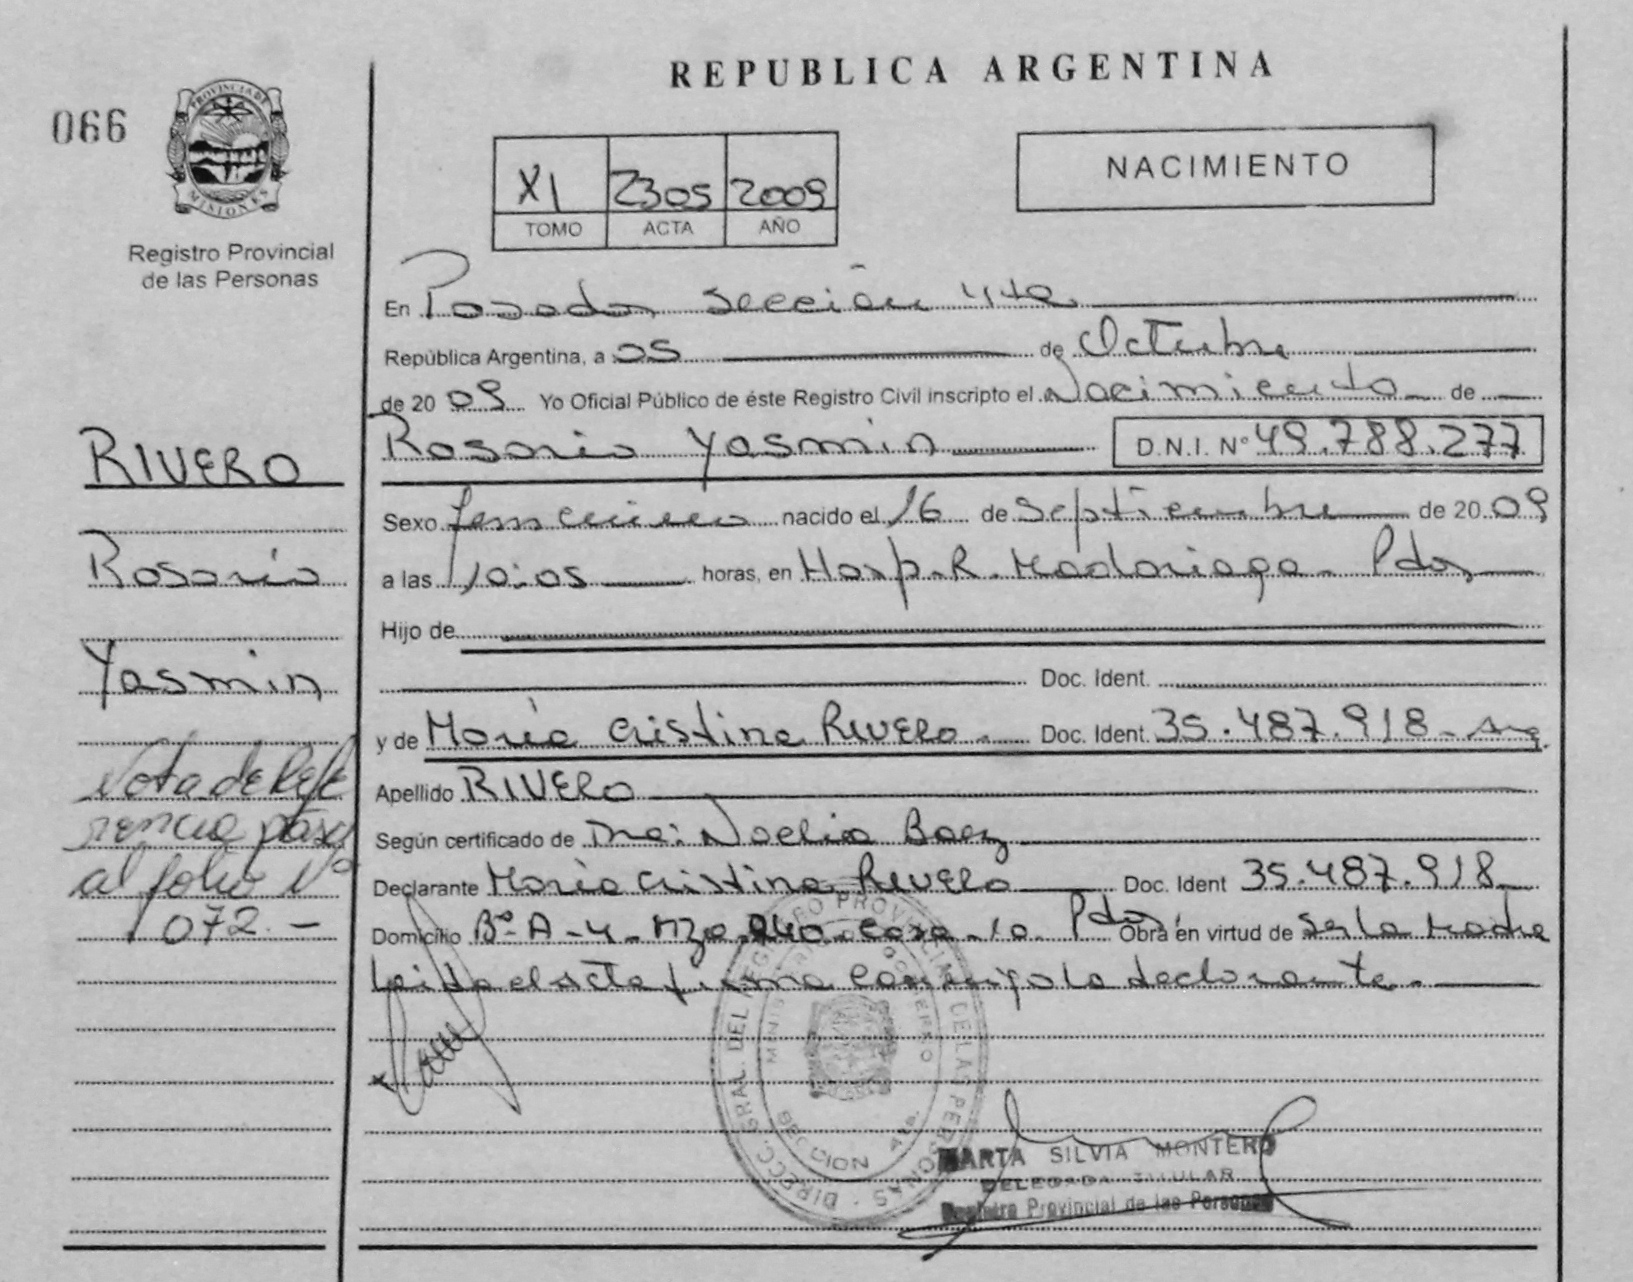 REPUBLICA ARGENTINA
066
PROVINCIA DE
MISIONES
Registro Provincial
de las Personas
XI 2305 2009
TOMO ACTA AÑO
NACIMIENTO
En Posadas Sección 4ta
República Argentina, a 05 de Octubre
de 20 09 Yo Oficial Público de éste Registro Civil inscripto el Nacimiento de
Rosario Yasmin D.N.I. Nº 49.788.277
Sexo femenino nacido el 16 de Septiembre de 20 09
a las 10:05 horas, en Hosp. R. Madariaga - Pdas
Hijo de
Doc. Ident.
y de María Cristina RIVERO - Doc. Ident. 35.487.918 - Arg.
Apellido RIVERO
Según certificado de Dra: Noelia Baez
Declarante María Cristina RIVERO Doc. Ident 35.487.918
Domicilio Bº A-4 - Mza 240 - Casa - 10 - Pdas Obra en virtud de Ser la Madre
Leida el acta firma Conmigo la declarante.
RIVERO
Rosario
Yasmin
Nota de Refe
rencia pasa
al folio Nº
072.-
DIRECC. GRAL. DEL REGISTRO PROVINCIAL DE LAS PERSONAS
MINISTERIO DE GOBIERNO
SECCION 4ta.
MARTA SILVIA MONTERO
DELEGADA TITULAR
Registro Provincial de las Personas